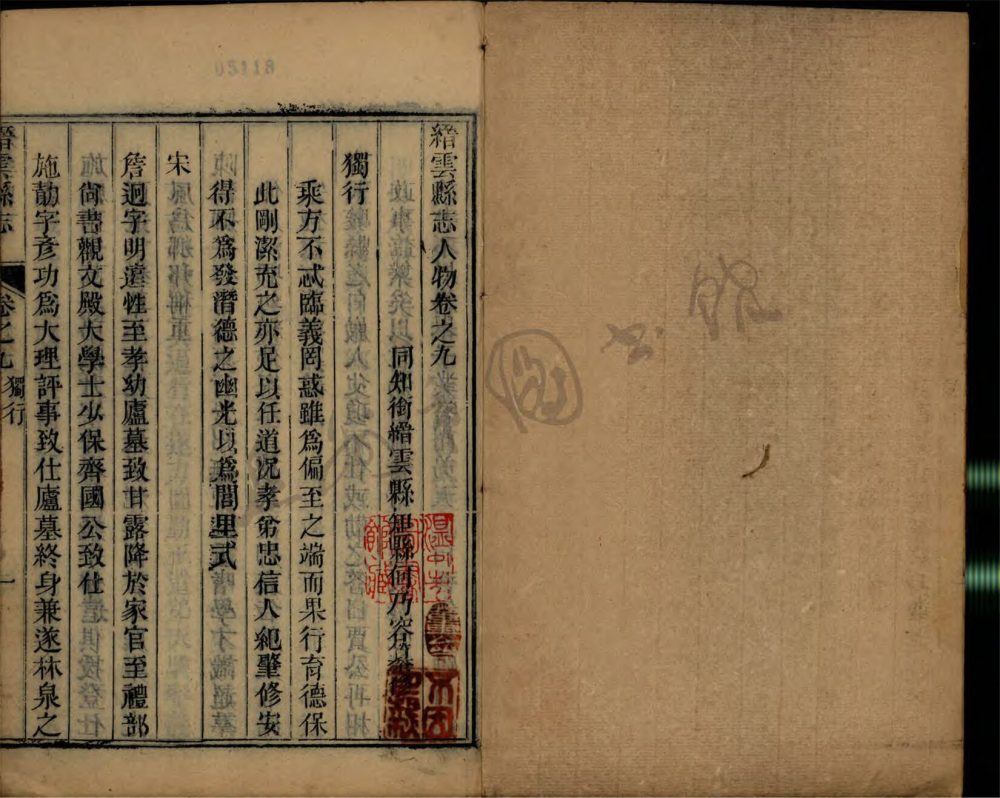 縉雲縣志人物卷之九
同知銜縉雲縣知縣何乃容
獨行
乘方不忒臨義罔惑雖為偏至之端而果行育德保
此剛潔充之亦足以任道況孝弟忠信人紀肇修安
得不為發潛德之幽光以為閭里式
宋
詹迥字明遠性至孝幼廬墓致甘露降於家官至禮部
尚書觀文殿大學士少保齊國公致仕
施勛字彥功為大理評事致仕廬墓終身兼遂林泉之
縉雲縣志
卷之九
獨行
一
05118